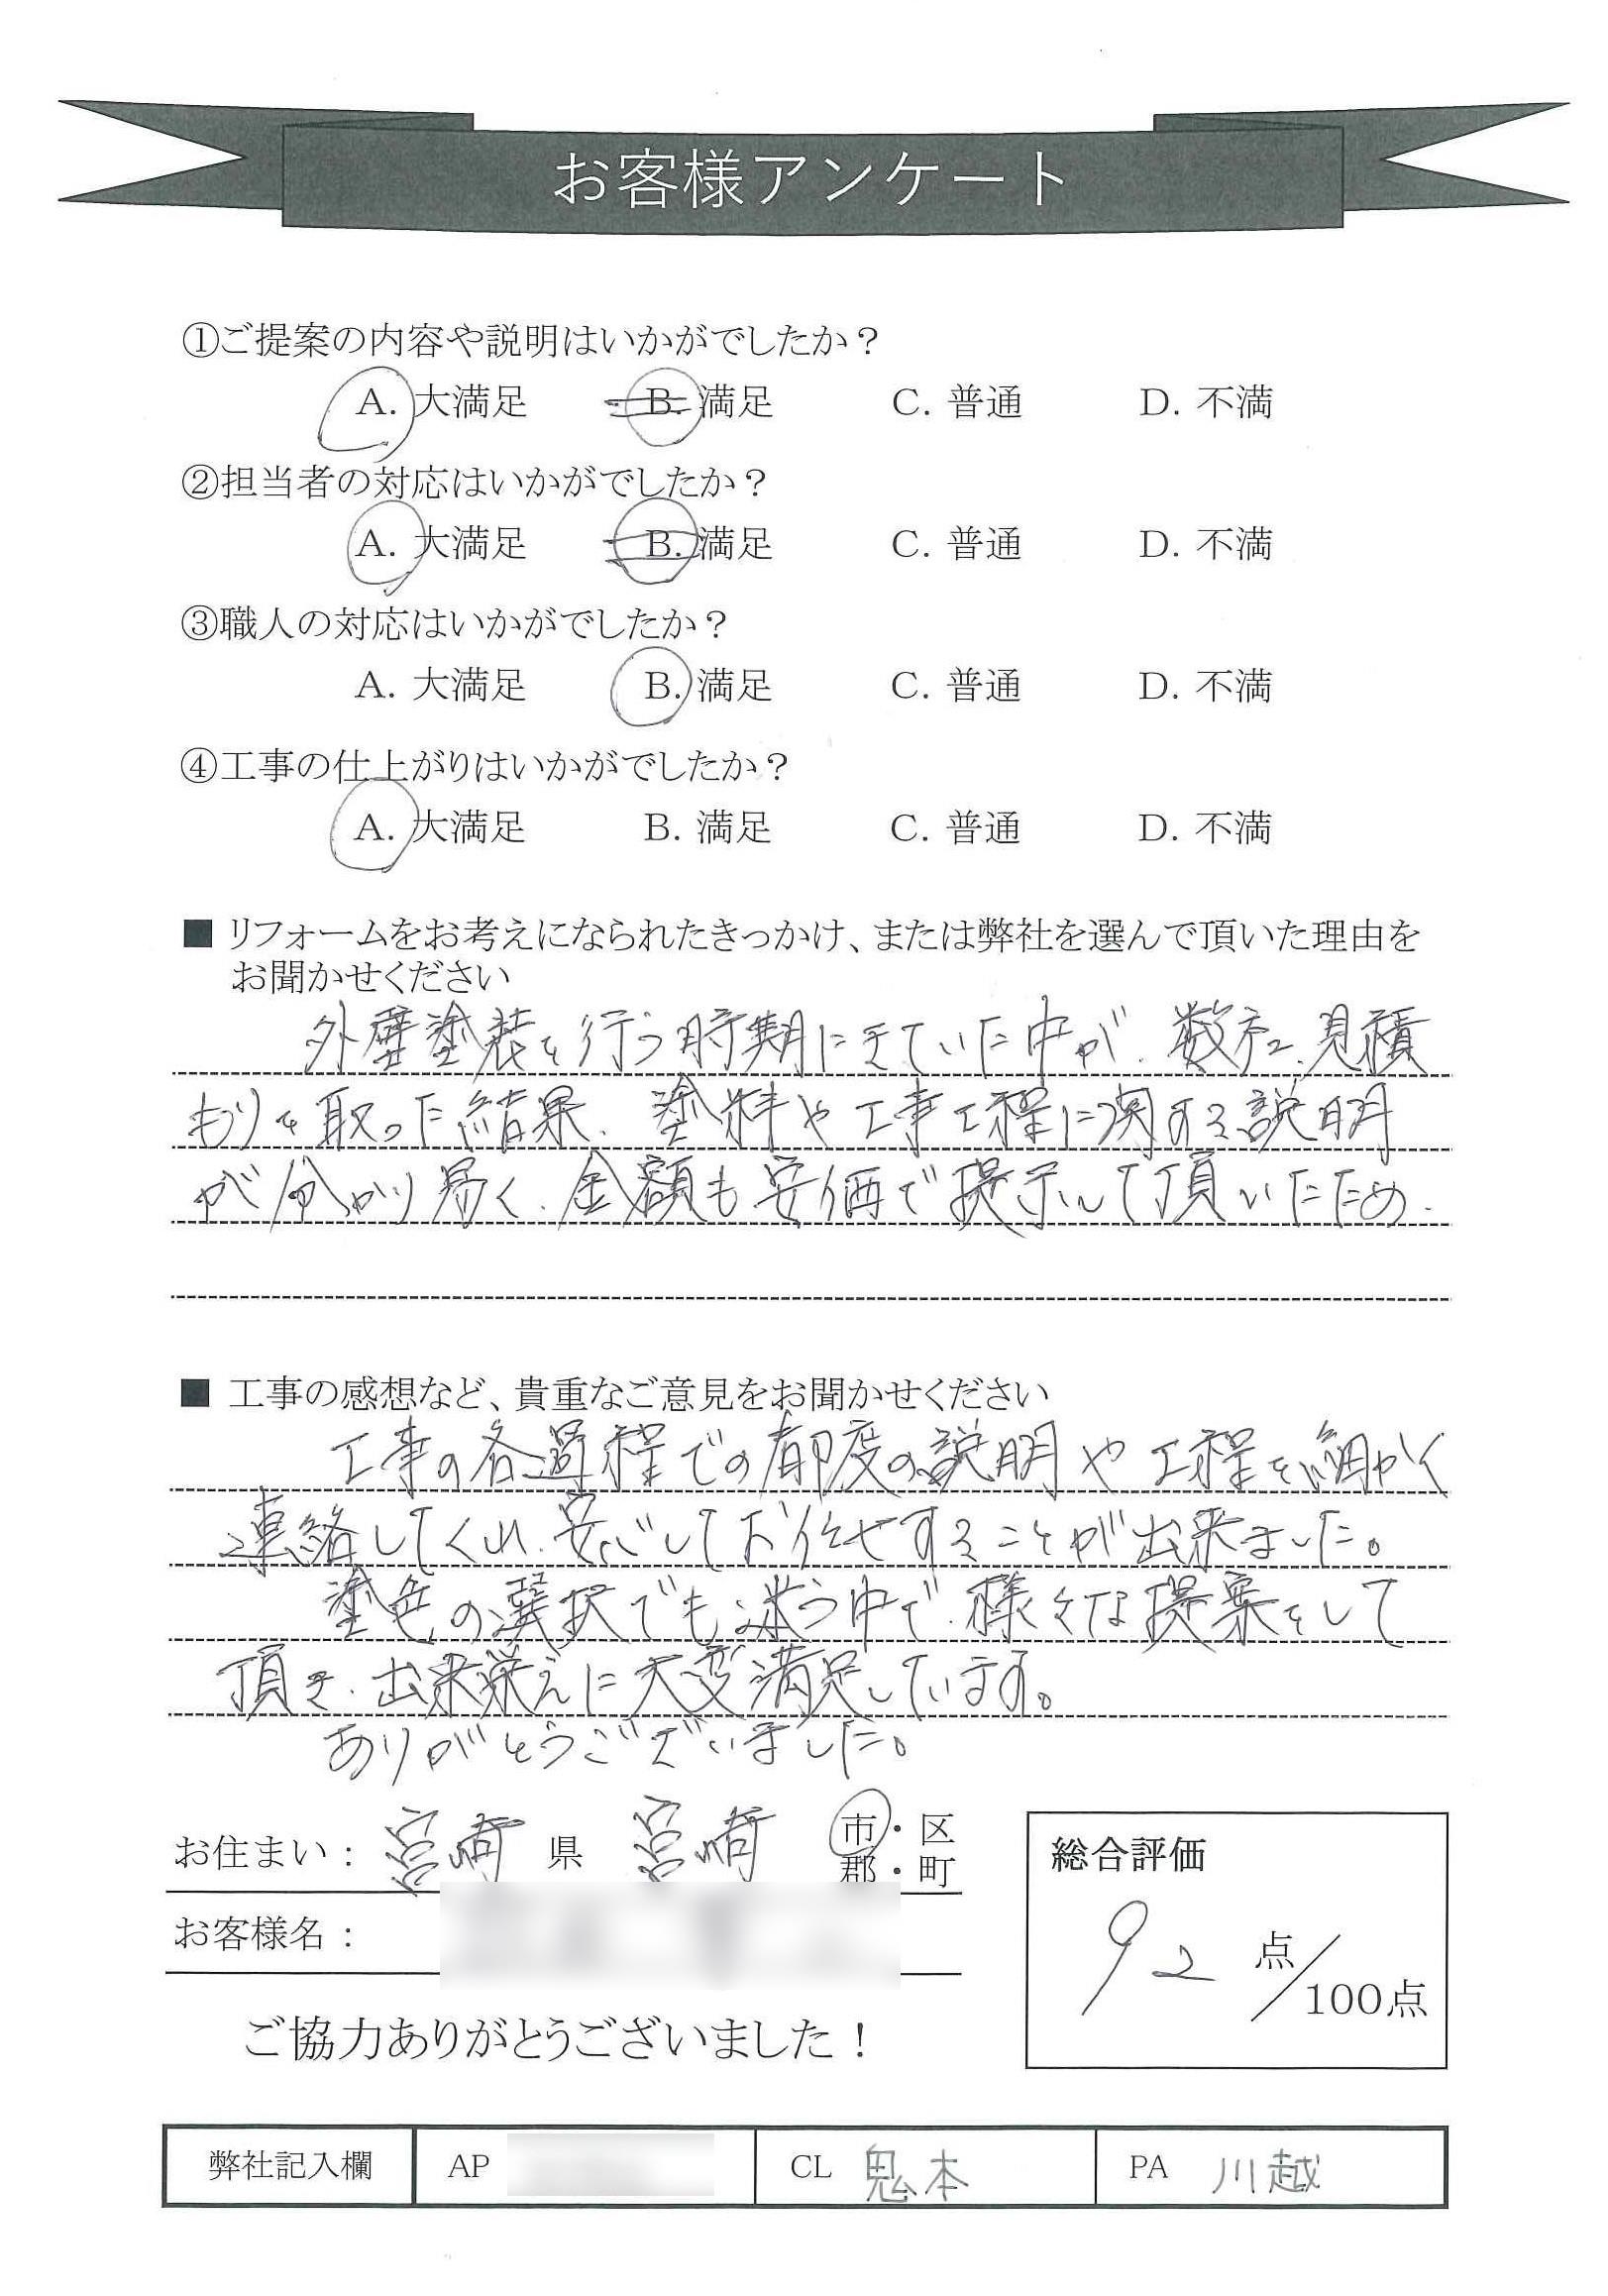 お客様アンケート
①ご提案の内容や説明はいかがでしたか？
A. 大満足 B. 満足 C. 普通 D. 不満
②担当者の対応はいかがでしたか？
A. 大満足 B. 満足 C. 普通 D. 不満
③職人の対応はいかがでしたか？
A. 大満足 B. 満足 C. 普通 D. 不満
④工事の仕上がりはいかがでしたか？
A. 大満足 B. 満足 C. 普通 D. 不満
■ リフォームをお考えになられたきっかけ、または弊社を選んで頂いた理由を
お聞かせください
外壁塗装を行う時期にきていた中が、数社、見積
もりを取った結果、塗料や工事工程に関する説明
が分かり易く、金額も安価で提示して頂いたため.
■ 工事の感想など、貴重なご意見をお聞かせください
工事の各過程での都度の説明や工程を細かく
連絡してくれ、安心してお任せすることが出来ました。
塗色の選択でも迷う中で、様々な提案をして
頂き、出来栄えに大変満足しています。
ありがとうございました。
お住まい： 宮崎 県 宮崎 市・区
郡・町
お客様名：
総合評価
92 点／100点
ご協力ありがとうございました！
弊社記入欄 AP CL 本 PA 川越